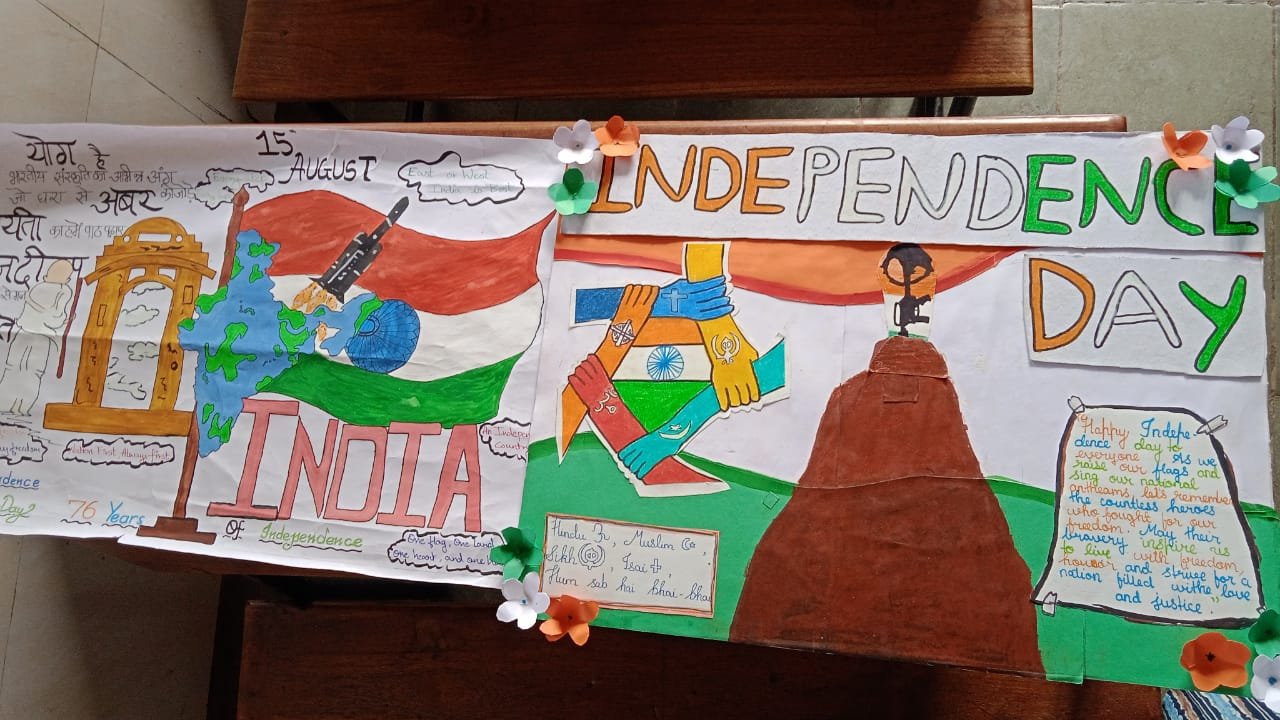 योग है
भारतीय संस्कृति का अभिन्न अंग
जो धरा से अंबर को जोड़े
का हमें पाठ पढ़ाए
15 AUGUST
East or West
India is Best
INDIA
Nation First Always First
76 Years
Of Independence
One flag, one land
one heart, and one
INDEPENDENCE
DAY
Hindu ॐ, Muslim ☪,
Sikh ☬, Isai ✝,
Hum sab hai bhai-bhai
"Happy Indepe-
dence day to
everyone. As we
raise our flags and
sing our national
antheams, let's remember
the countless heroes
who fought for our
freedom. May their
bravery inspire us
to live with freedom,
honour and strive for a
nation filled withe love
and justice."